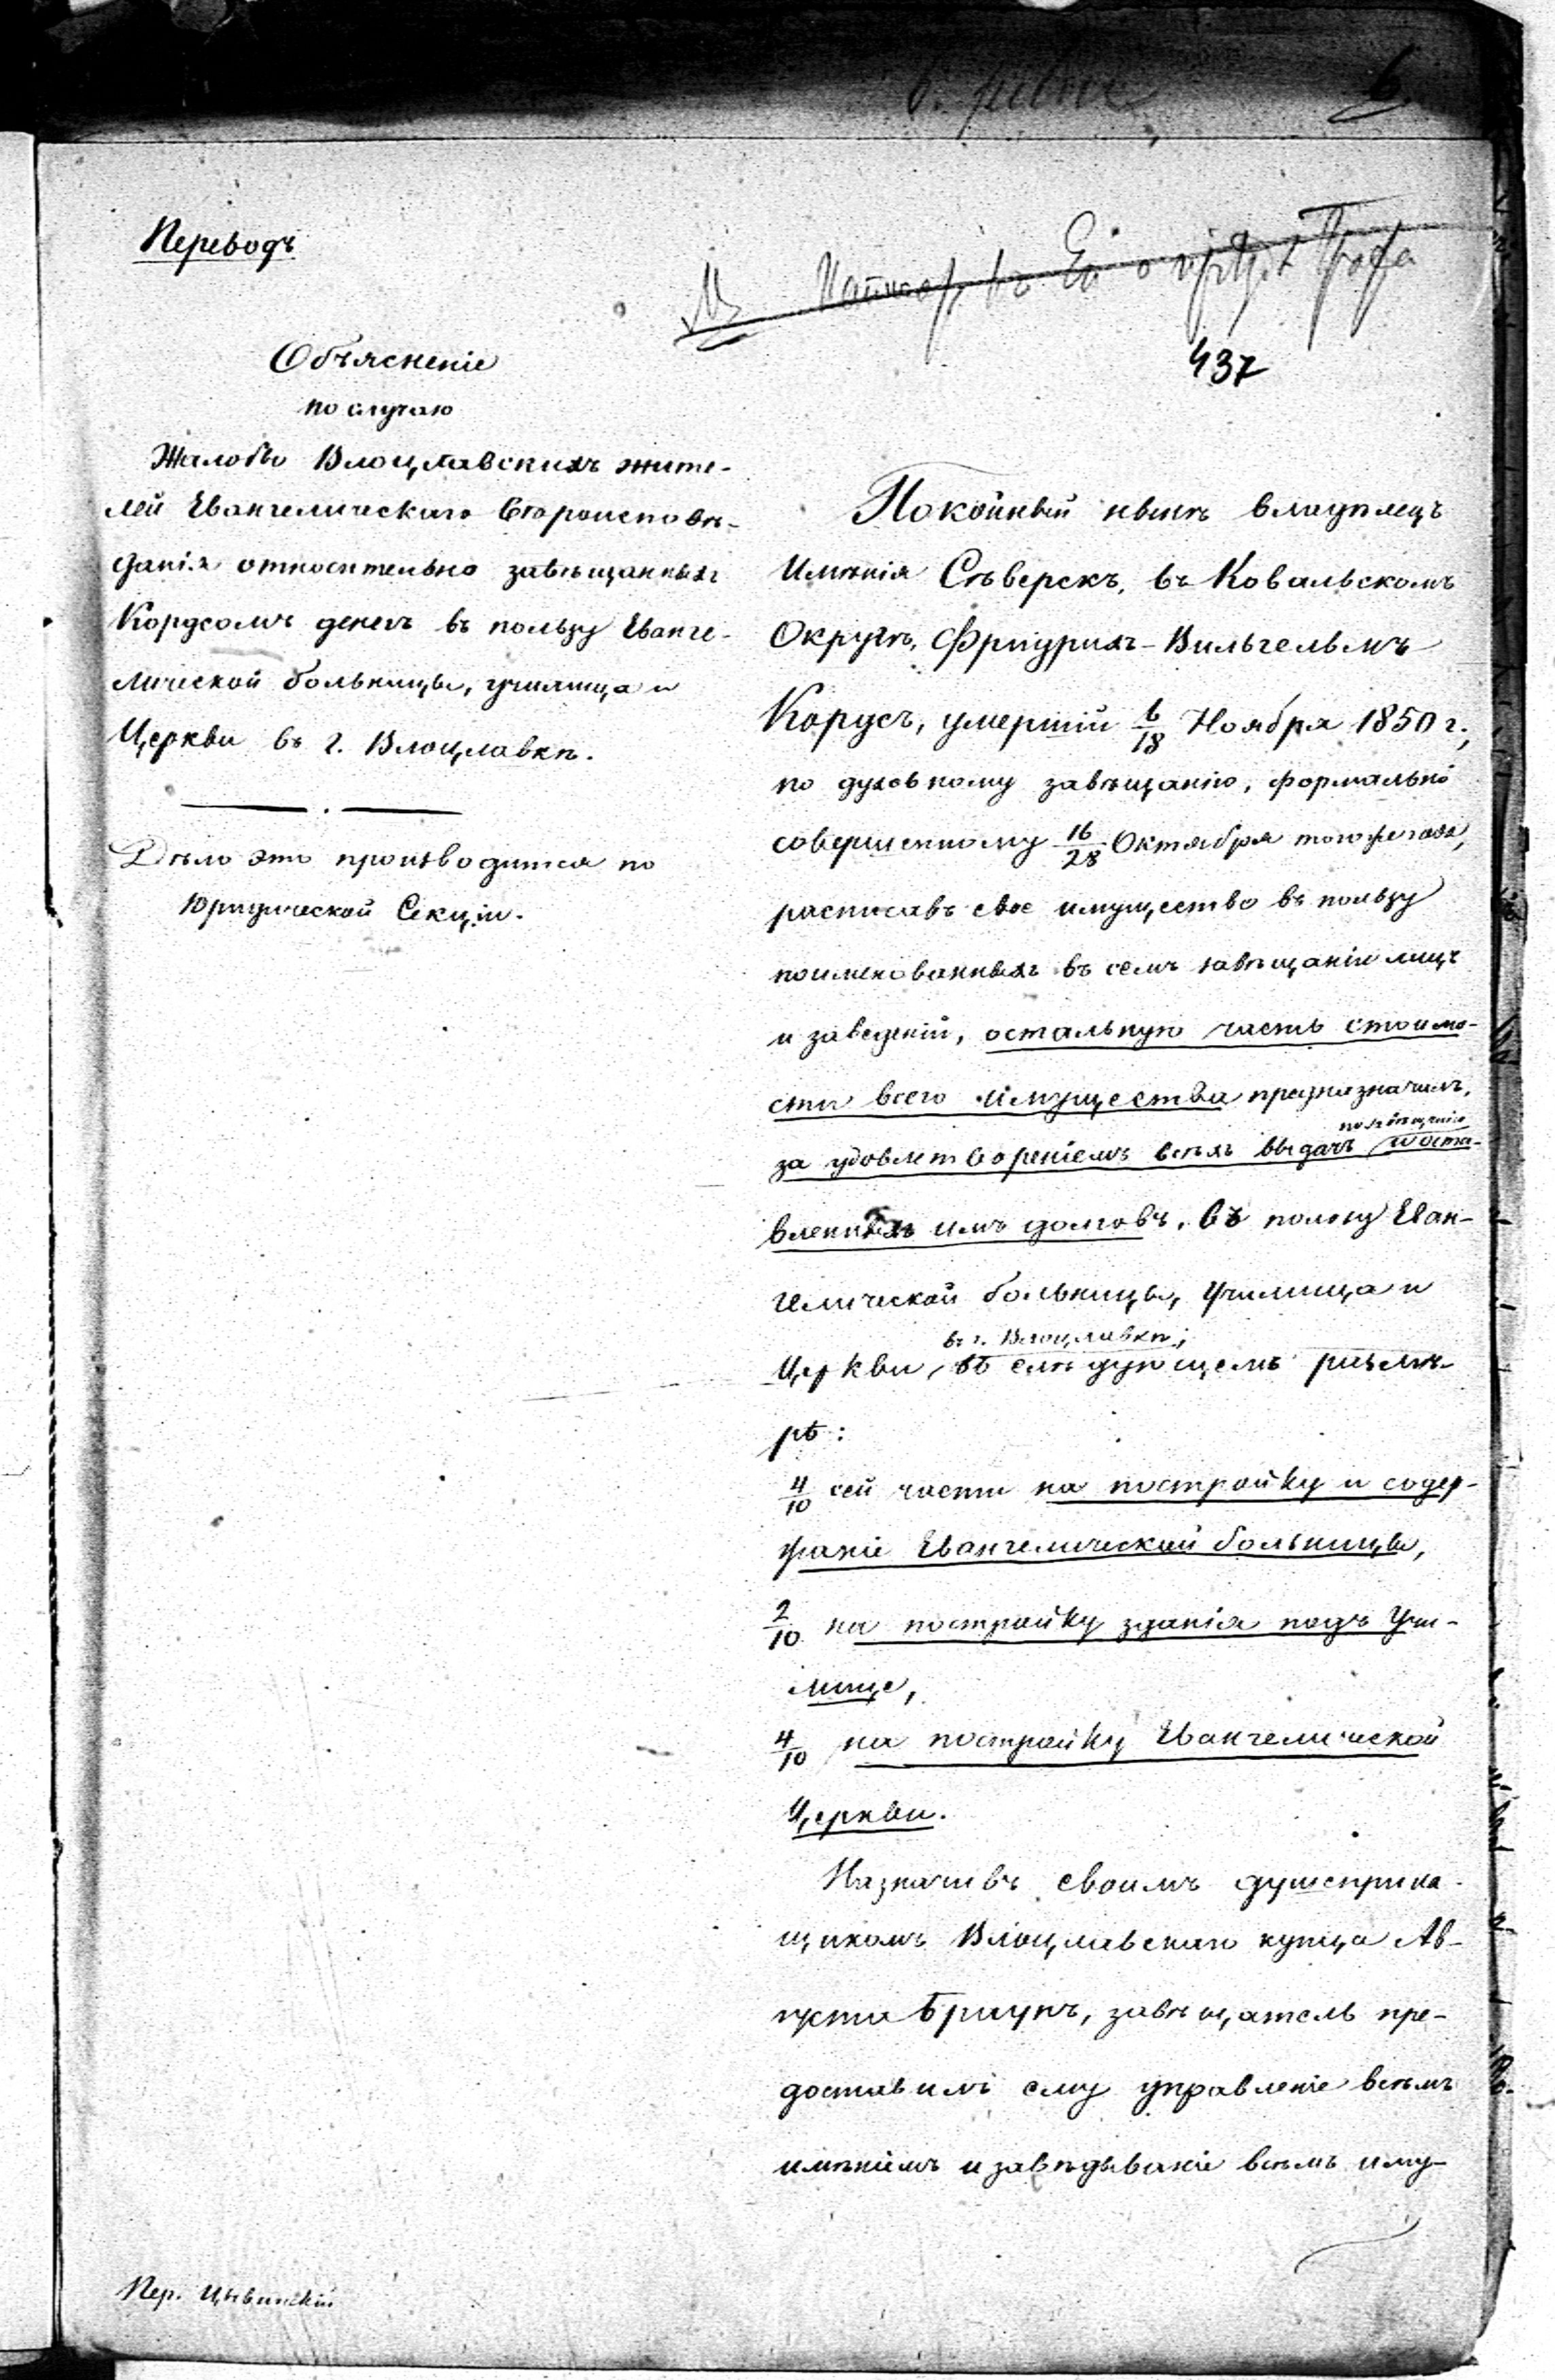 6.
Переводъ
437
Объясненіе
по случаю
Жалобы Влоцлавскихъ жите-
лей Евангелическаго Вѣроисповѣ-
данія относительно завѣщанныхъ
Кордсомъ денегъ въ пользу Еванге-
лической больницы, училища и
Церкви въ г. Влоцлавкѣ.
Дѣло это производится по
Юридической Секціи.
Пер. Цывинскій
Покойный нынѣ владѣлецъ
Имѣнія Сѣверскъ, въ Ковальскомъ
Округѣ, Фридрихъ-Вильгельмъ
Кордсъ, умершій 6/18 Ноября 1850 г.,
по духовному завѣщанію, формально
совершенному 16/28 Октября того же года,
расписавъ свое имущество въ пользу
поименованныхъ въ семъ завѣщаніи лицъ
и заведеній, остальную часть стоимо-
сти всего имущества предназначилъ,
за удовлетвореніемъ всѣхъ выдачъ и оста-
вленныхъ имъ долговъ, въ пользу Еван-
гелической больницы, Училища и
въ г. Влоцлавкѣ,
Церкви, въ слѣдующемъ размѣ-
рѣ:
4/10 сей части на постройку и содер-
жаніе Евангелической больницы,
2/10 на постройку зданія подъ Учи-
лище,
4/10 на постройку Евангелической
Церкви.
Назначивъ своимъ душеприка-
щикомъ Влоцлавскаго купца Ав-
густа Браунъ, завѣщатель пре-
доставилъ ему управленіе всѣмъ
имѣніемъ и завѣдываніе всѣмъ иму-